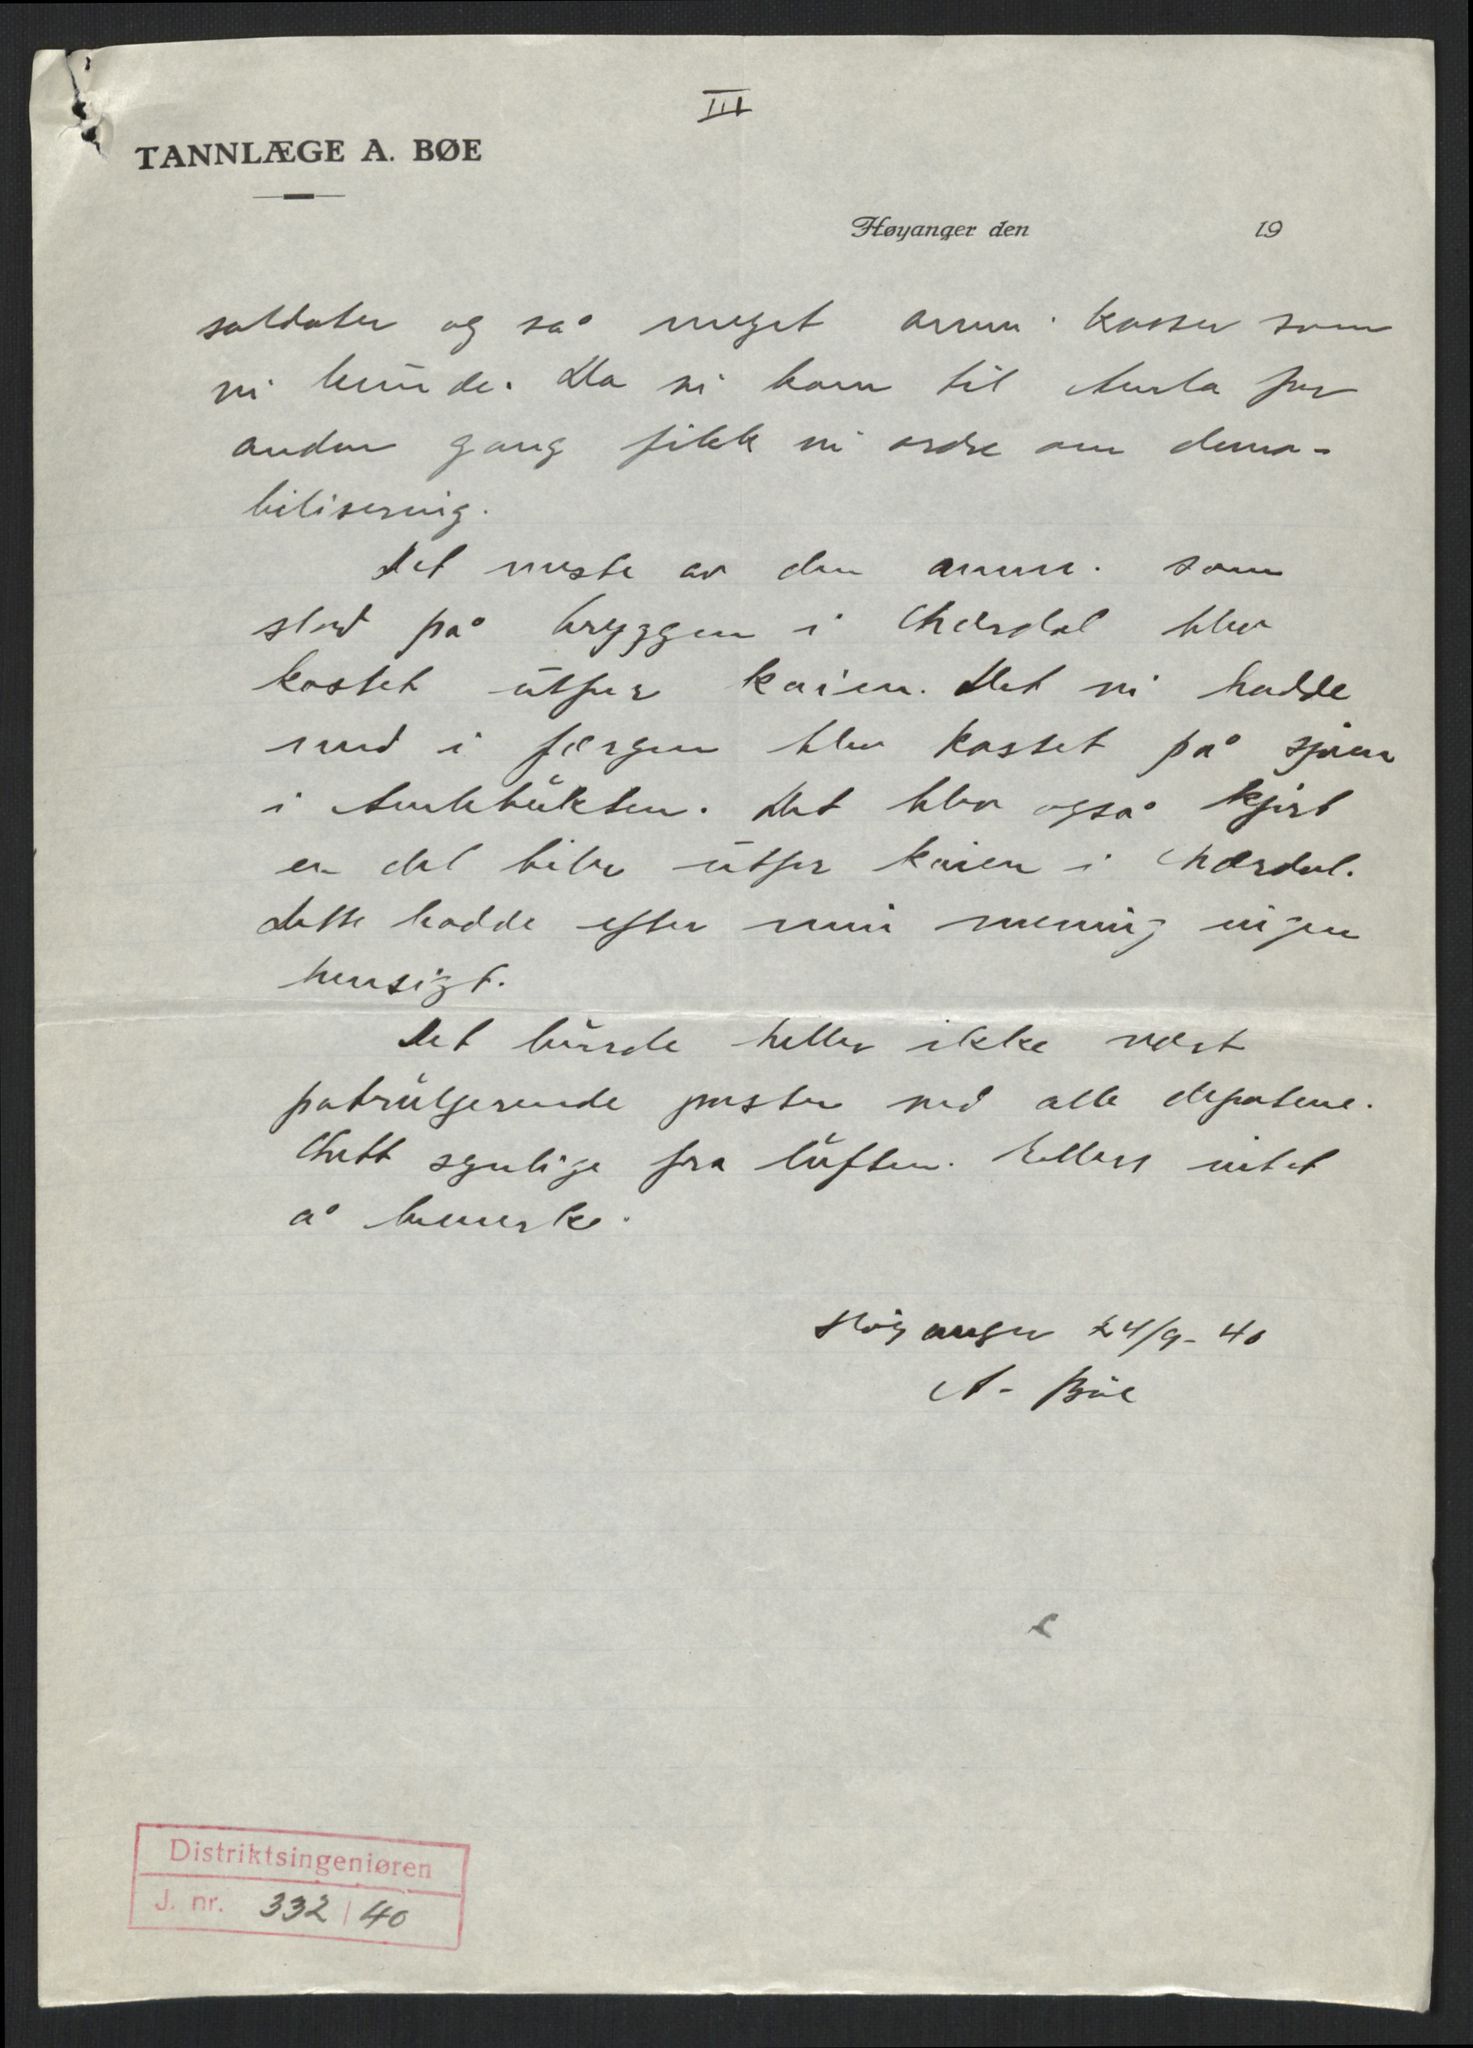 III
TANNLÆGE A. BØE
Høyanger den 19
soldater og så meget amm. kasser som
vi kunde. Da vi kom til Aurla for
anden gang fikk vi ordre om demo-
bilisering.
Det meste av den amm. som
stod på bryggen i Lærdal blev
kastet utfor kaien. Det vi hadde
med i færgen blev kastet på sjøen
i Aurlabukten. Det blev også kjørt
en del biler utfor kaien i Lærdal.
Dette hadde efter min mening ingen
hensigt.
Det burde heller ikke vært
patruljerende poster ved alle depotene.
Lett synlige fra luften. Ellers intet
å bemerke.
Høyanger 24/9-40
A. Bøe
Distriktsingeniøren
J. nr. 332 / 40